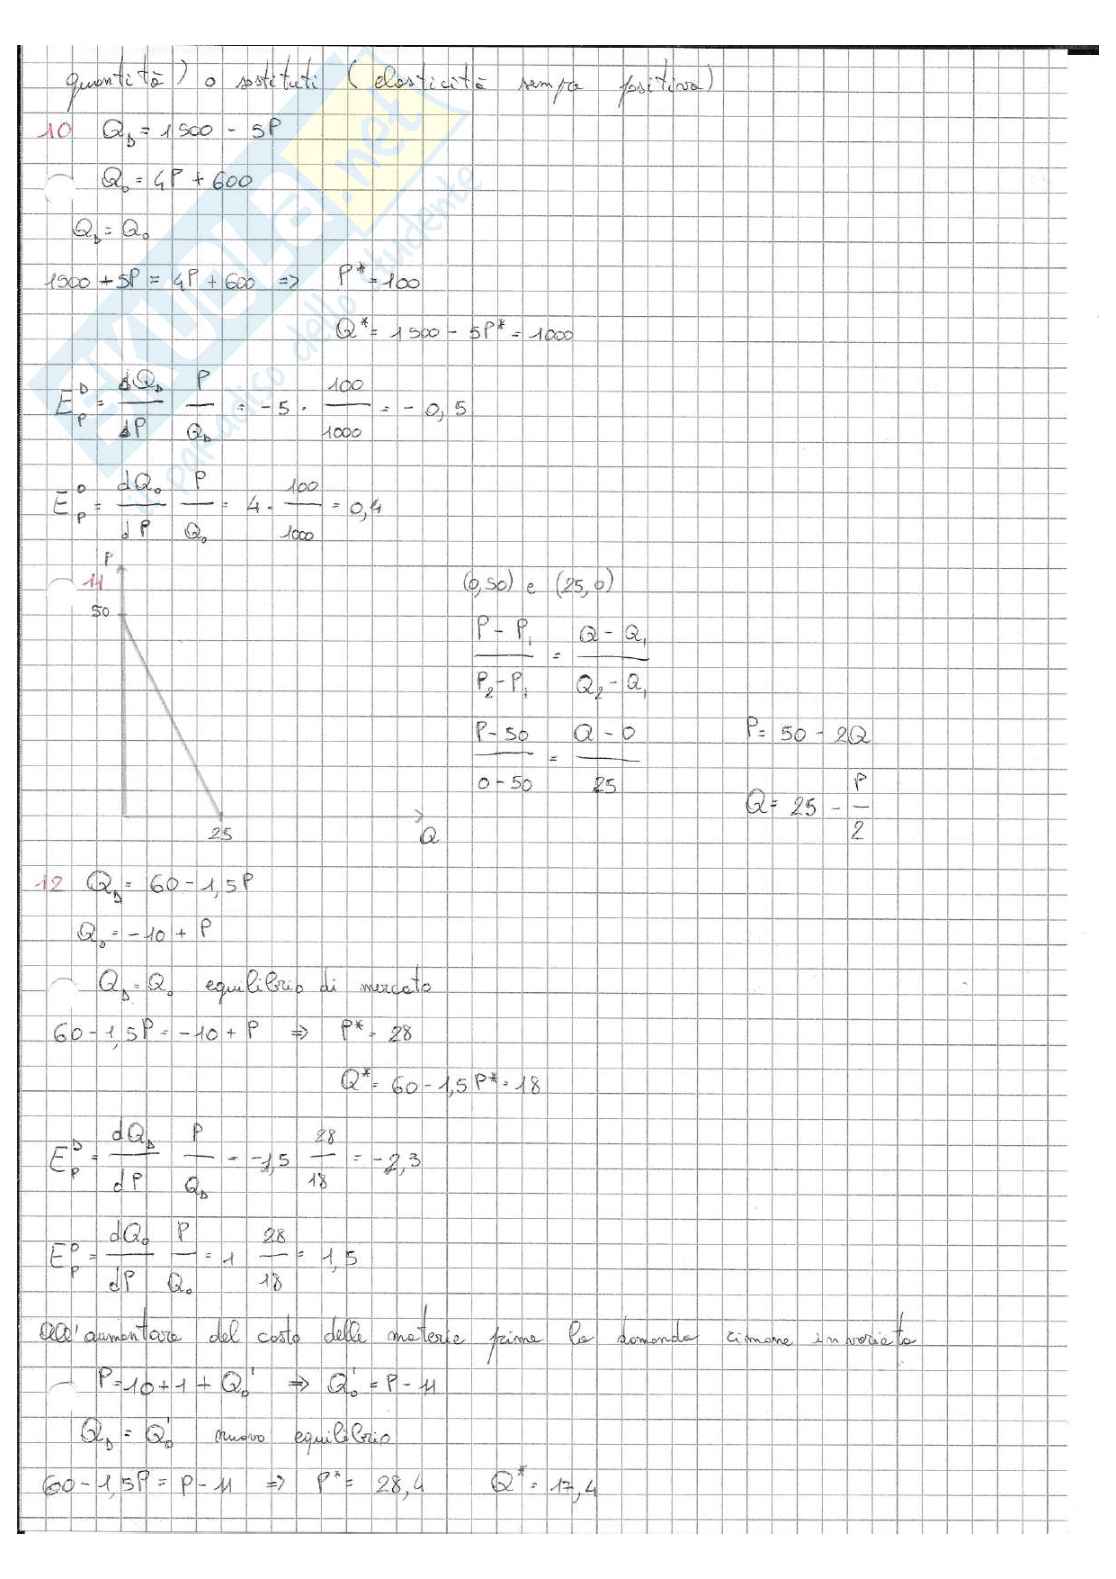 quantità) o sostituti (elasticità sempre positiva)
10 Q_D = 1500 - 5P
Q_o = 4P + 600
Q_D = Q_o
1500 + 5P = 4P + 600 => P* = 100
Q* = 1500 - 5P* = 1000
E_P^D = ΔQ_D/ΔP P/Q_D = -5 · 100/1000 = -0,5
E_P^O = dQ_o/dP P/Q_o = 4 · 100/1000 = 0,4
P
14
50
25
Q
(0,50) e (25,0)
P - P₁/P₂ - P₁ = Q - Q₁/Q₂ - Q₁
P - 50/0 - 50 = Q - 0/25
P = 50 - 2Q
Q = 25 - P/2
12 Q_D = 60 - 1,5P
Q_o = -10 + P
Q_D = Q_o equilibrio di mercato
60 - 1,5P = -10 + P => P* = 28
Q* = 60 - 1,5P* = 18
E_P^D = dQ_D/dP P/Q_D = -1,5 28/18 = -2,3
E_P^O = dQ_o/dP P/Q_o = 1 28/18 = 1,5
All'aumentare del costo delle materie prime la domanda rimane invariata
P = 10 + 1 + Q_o' => Q_o' = P - 11
Q_D = Q_o' nuovo equilibrio
60 - 1,5P = P - 11 => P* = 28,4 Q* = 17,4
SKUOLA.net
il paradiso dello studente